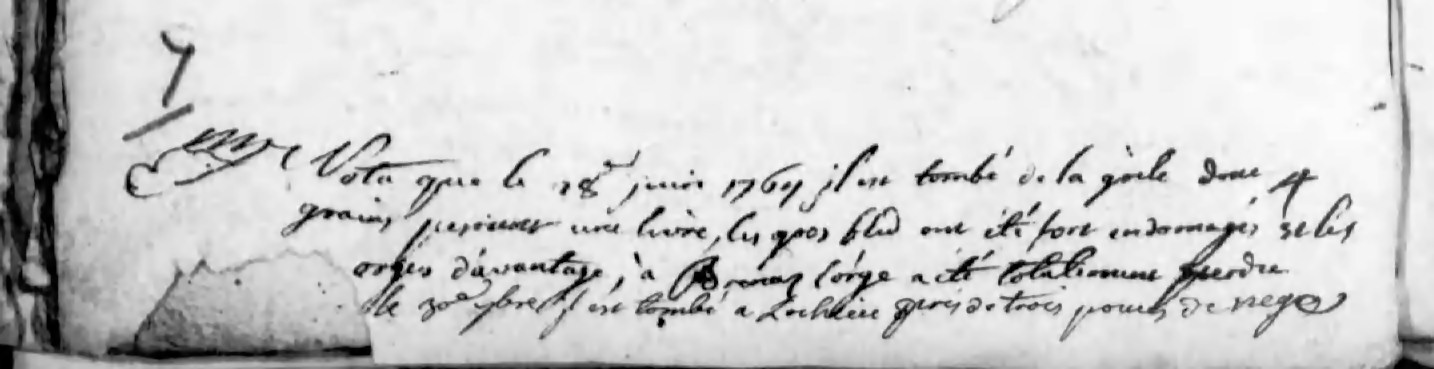 Nota que le 28e juin 1769 il est tombé de la grele dont 4
grains pesoient une livre, les gros bled ont été fort endomagés et les
orges d'avantage, a l'orge a été totalement perdue
le 30e 7bre il est tombé a près de trois pouces de nege